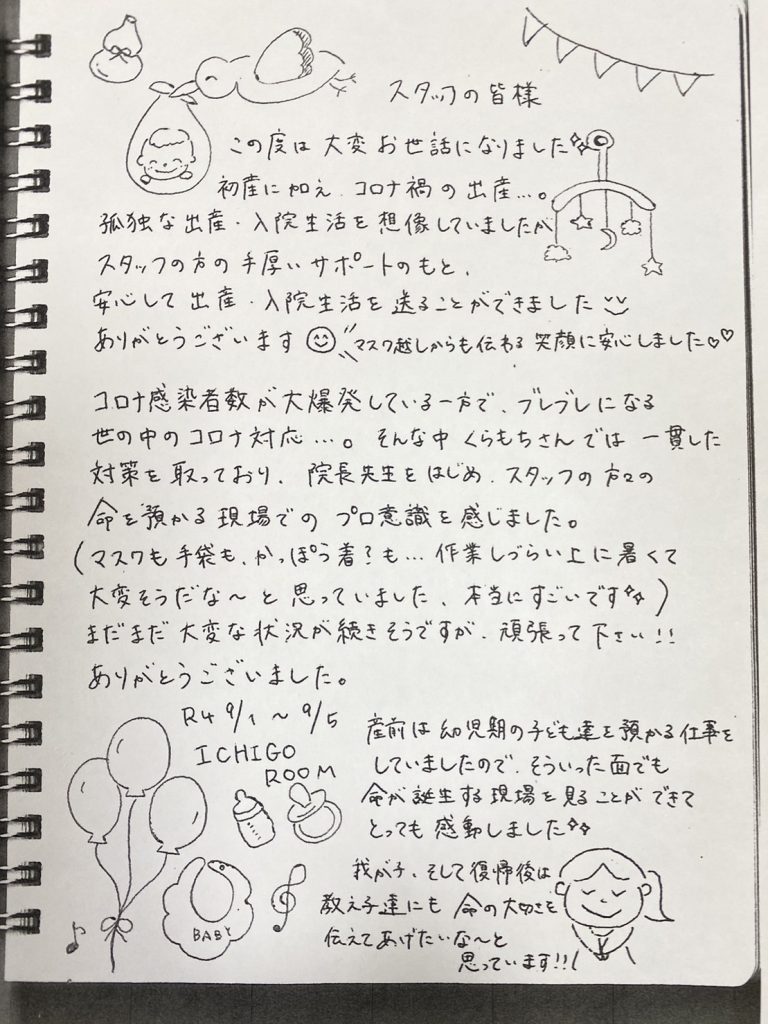 スタッフの皆様
この度は大変お世話になりました✨
初産に加え、コロナ禍の出産…。
孤独な出産・入院生活を想像していましたが
スタッフの方の手厚いサポートのもと、
安心して出産・入院生活を送ることができました
ありがとうございます マスク越しからも伝わる笑顔に安心しました♡♡
コロナ感染者数が大爆発している一方で、ブレブレになる
世の中のコロナ対応…。そんな中くらもちさんでは一貫した
対策を取っており、院長先生をはじめ、スタッフの方々の
命を預かる現場でのプロ意識を感じました。
(マスクも手袋も、かっぽう着?も…作業しづらい上に暑くて
大変そうだな〜と思っていました、本当にすごいです✨)
まだまだ大変な状況が続きそうですが、頑張って下さい!!
ありがとうございました。
R4 9/1 〜 9/5
ICHIGO
ROOM
産前は幼児期の子ども達を預かる仕事を
していましたので、そういった面でも
命が誕生する現場を見ることができて
とっても感動しました✨
我が子、そして復帰後は
教え子達にも命の大切さを
伝えてあげたいな〜と
思っています!!
BABY